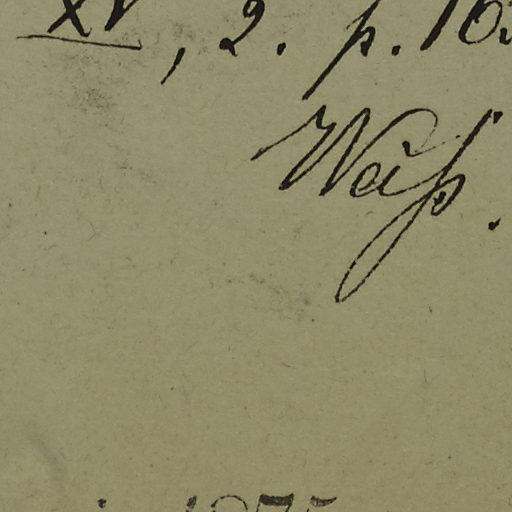 XV, 2. p. 16
Wäß.
1875